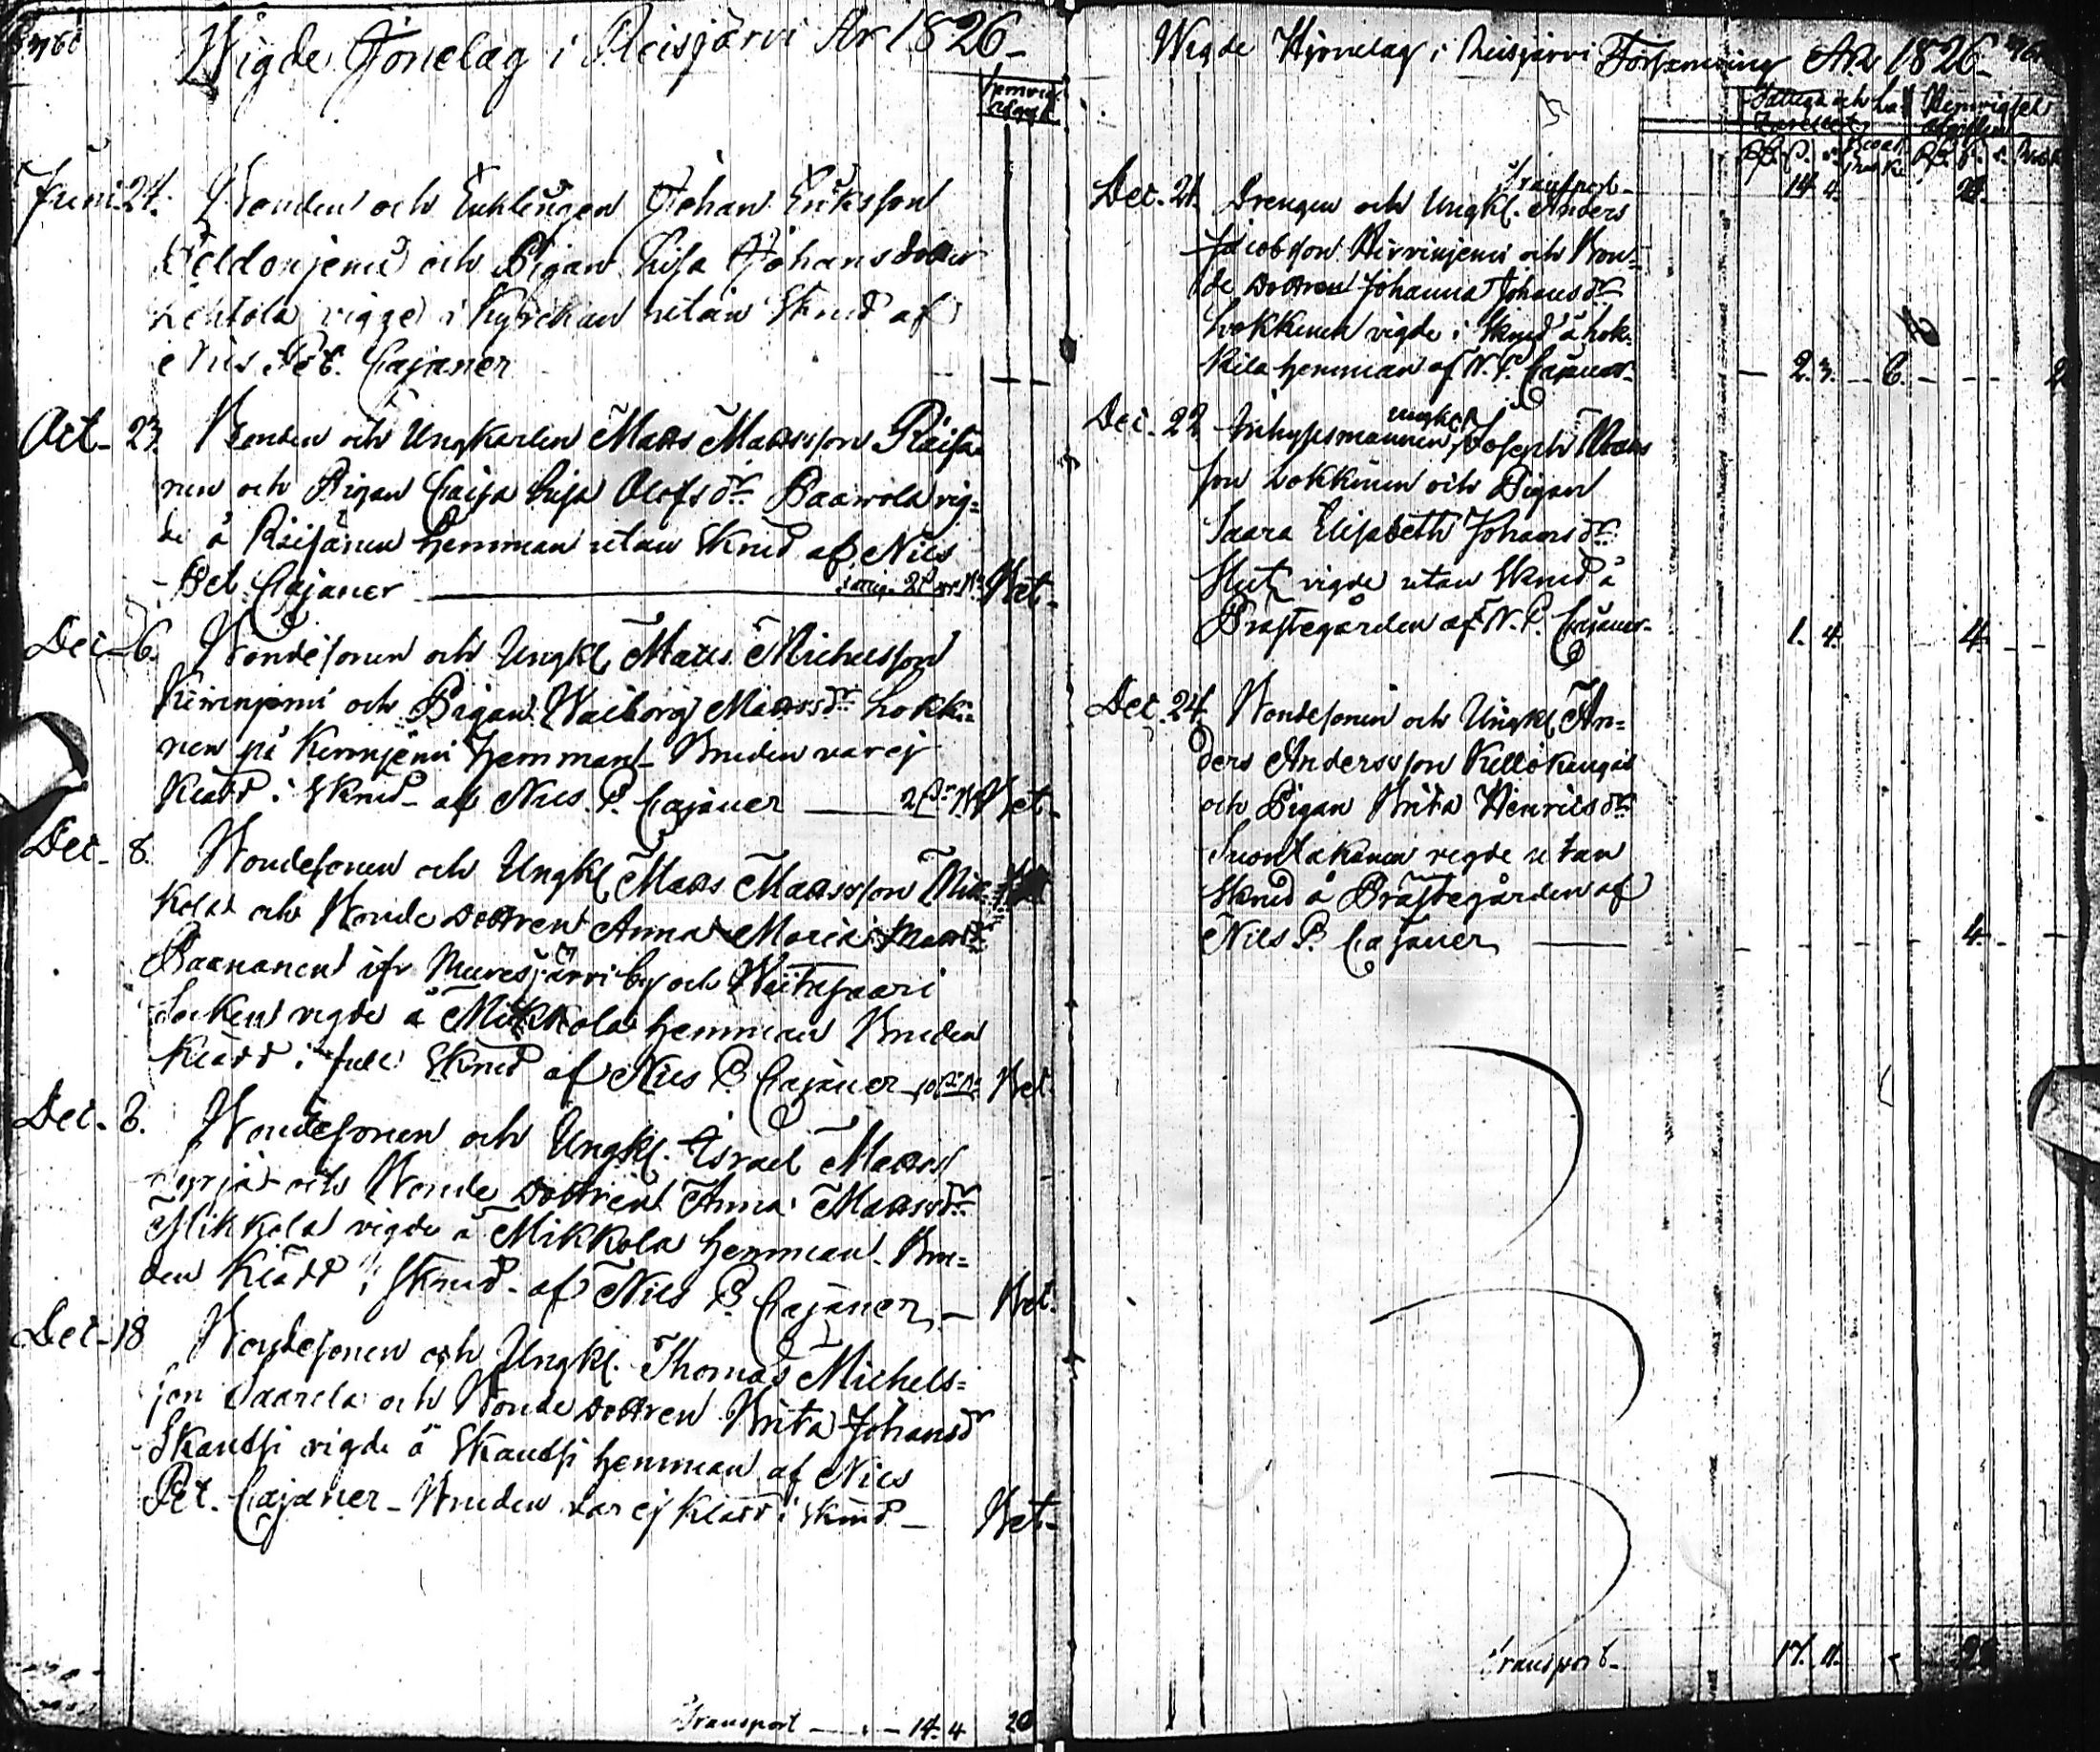 Wigde Hjonelag i Reisjärvi År 1826
Juni 24. Bonden och Enklingen Johan Ericksson
och Pigan Lisa Johansdotter
Lehtola vigde i Kyrckan utan Skrud af
Nils Pet. Cajaner
Oct. 23. Bonden och Ungkarlen Matts Mattsson Räisä-
nen och Pigan Caisa Lisa Olofsdr Paavola vig=
de å Räisänen hemman utan Skrud af Nils
Pet. Cajaner Bet.
Dec. 6. Bondesonen och Ungkl. Matts Michelsson
Kivinjemi och Pigan Walborg Mattsdr Lokki=
nen på Kivinjemi Hemman Bruden var ej
Klädd i Skrud af Nils P. Cajaner Bet.
Dec. 8. Bondesonen och Ungkl. Matts Mattsson Mik=
kola och Bonde Dottren Anna Maria Mattsdr
Paananen ifr Muresjärvi by och Wiitasaari
Socken vigde å Mikkola hemman Bruden
Klädd i full Skrud af Nils P. Cajaner Bet.
Dec. 8. Bondesonen och Ungkl. Israel Matts
Syrjä och Bonde Dottren Anna Mattsdr
Mikkola vigde å Mikkola hemman. Bru=
den Klädd i Skrud af Nils P. Cajaner Bet.
Dec. 18 Bondesonen och Ungkl. Thomas Michels=
son Saarela och Bonde Dottren Brita Johansdr
Skantsi vigde å Skantsi hemman af Nils
Pet. Cajaner - Bruden var ej Klädd i Skrud Bet.
Transport 14. 4 20
Wigde Hjonelag i Reisjärvi Församning År 1826
Transport 14. 4.
Dec. 21. Drengen och Ungkl. Anders
Jacobsson Hirvinjemi och Bon=
de Dottren Johanna Johansdr
Lokkinen vigde i Skrud å Lok-
kila hemman af N. P. Cajaner 2. 3. 6. 2
Dec. 22 Inhysesmannen ungkl. Joseph Matts
son Lokkinen och Pigan
Saara Elisabeth Johansdr
vigde utan Skrud å
Prästegården af N. P. Cajaner 1. 4. 4.
Dec. 24 Bondesonen och Ungkl. An=
ders Andersson Kellokangas
och Pigan Brita Henricsdr
vigde utan
Skrud å Prästegården af
Nils P. Cajaner 4.
Transport